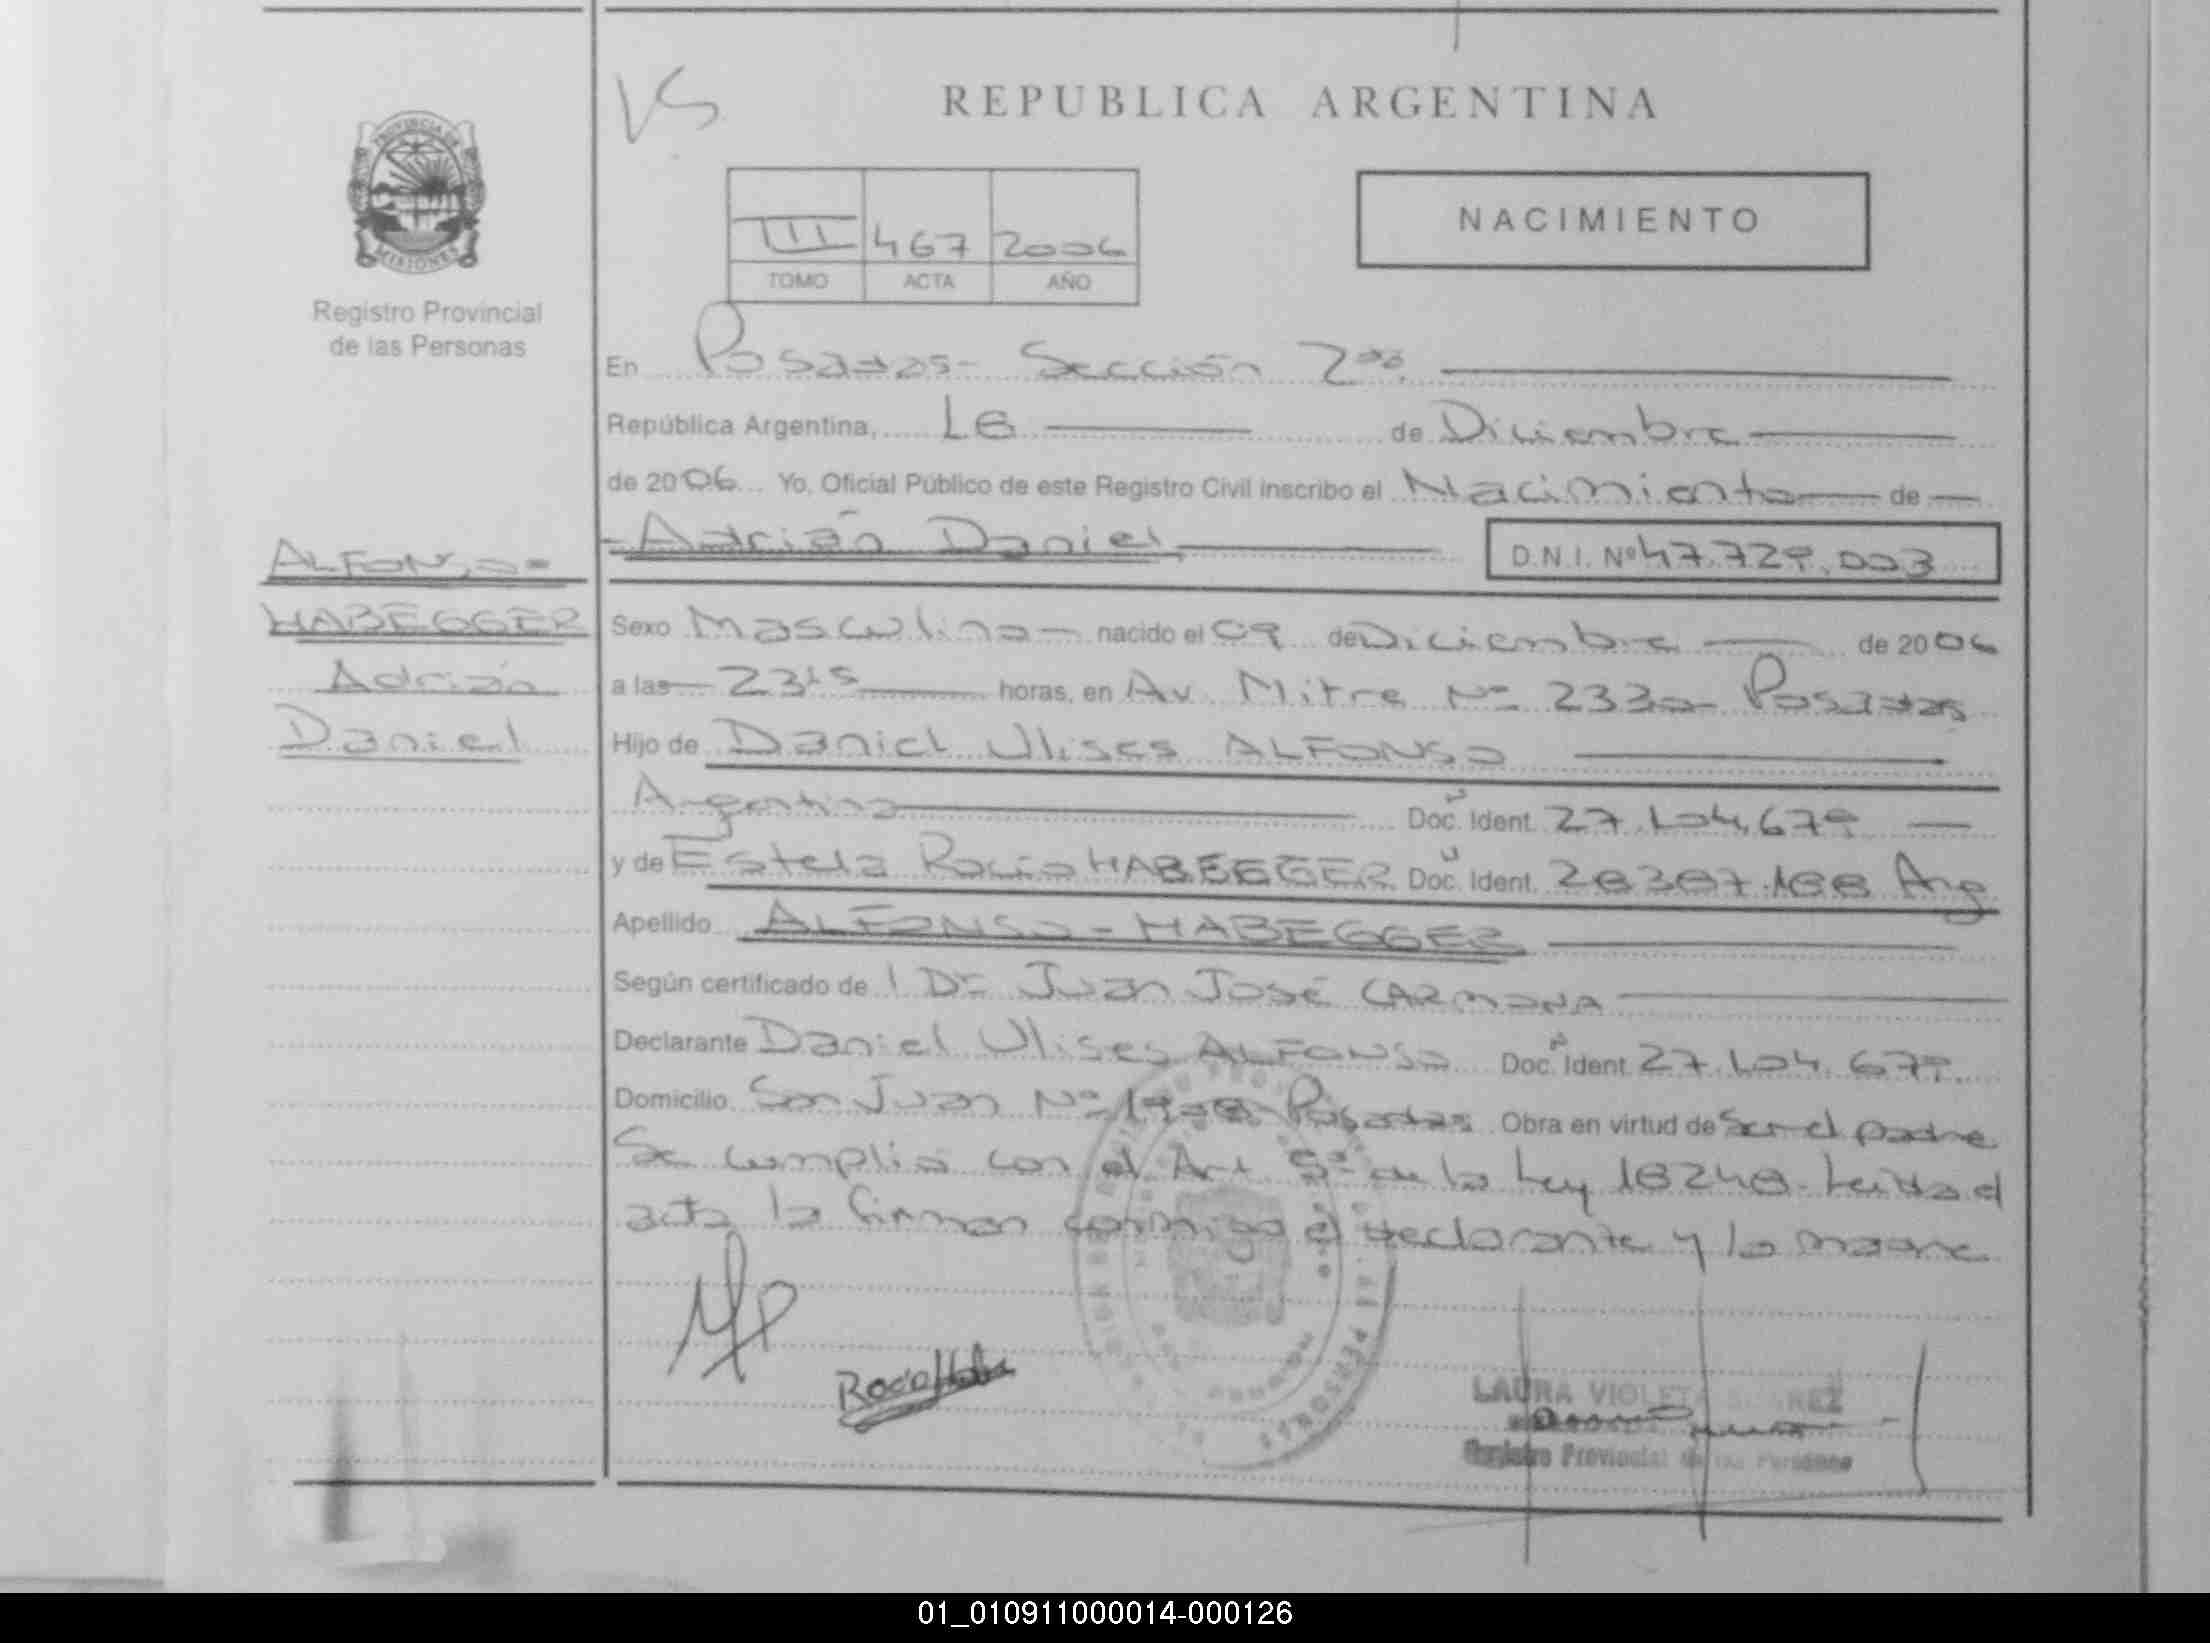 REPUBLICA ARGENTINA
VS
PROVINCIA DE MISIONES
Registro Provincial
de las Personas
III 467 2006
TOMO ACTA AÑO
NACIMIENTO
En Posadas - Sección 2da.
República Argentina, 18 de Diciembre
de 2006 Yo, Oficial Público de este Registro Civil inscribo el Nacimiento de
Adrián Daniel D.N.I. Nº 47.729.003
ALFONSO-
HABEGGER
Adrián
Daniel
Sexo Masculino nacido el 09 de Diciembre de 2006
a las 23 15 horas, en Av. Mitre Nº 2330 Posadas
Hijo de Daniel Ulises ALFONSO
Argentino Doc. Ident. 27.104.679
y de Estela Rocío HABEGGER Doc. Ident. 28387.188 Arg
Apellido ALFONSO-HABEGGER
Según certificado de l Dr Juan José CARMONA
Declarante Daniel Ulises ALFONSO Doc. Ident. 27.104.679.
Domicilio San Juan Nº Posadas Obra en virtud de Ser el padre
Se cumplió con el Art 5º de la Ley 18248. Leída el
acta la firman conmigo el declarante y la madre
LAURA VIOLETA
Registro Provincial de las Personas
01_010911000014-000126